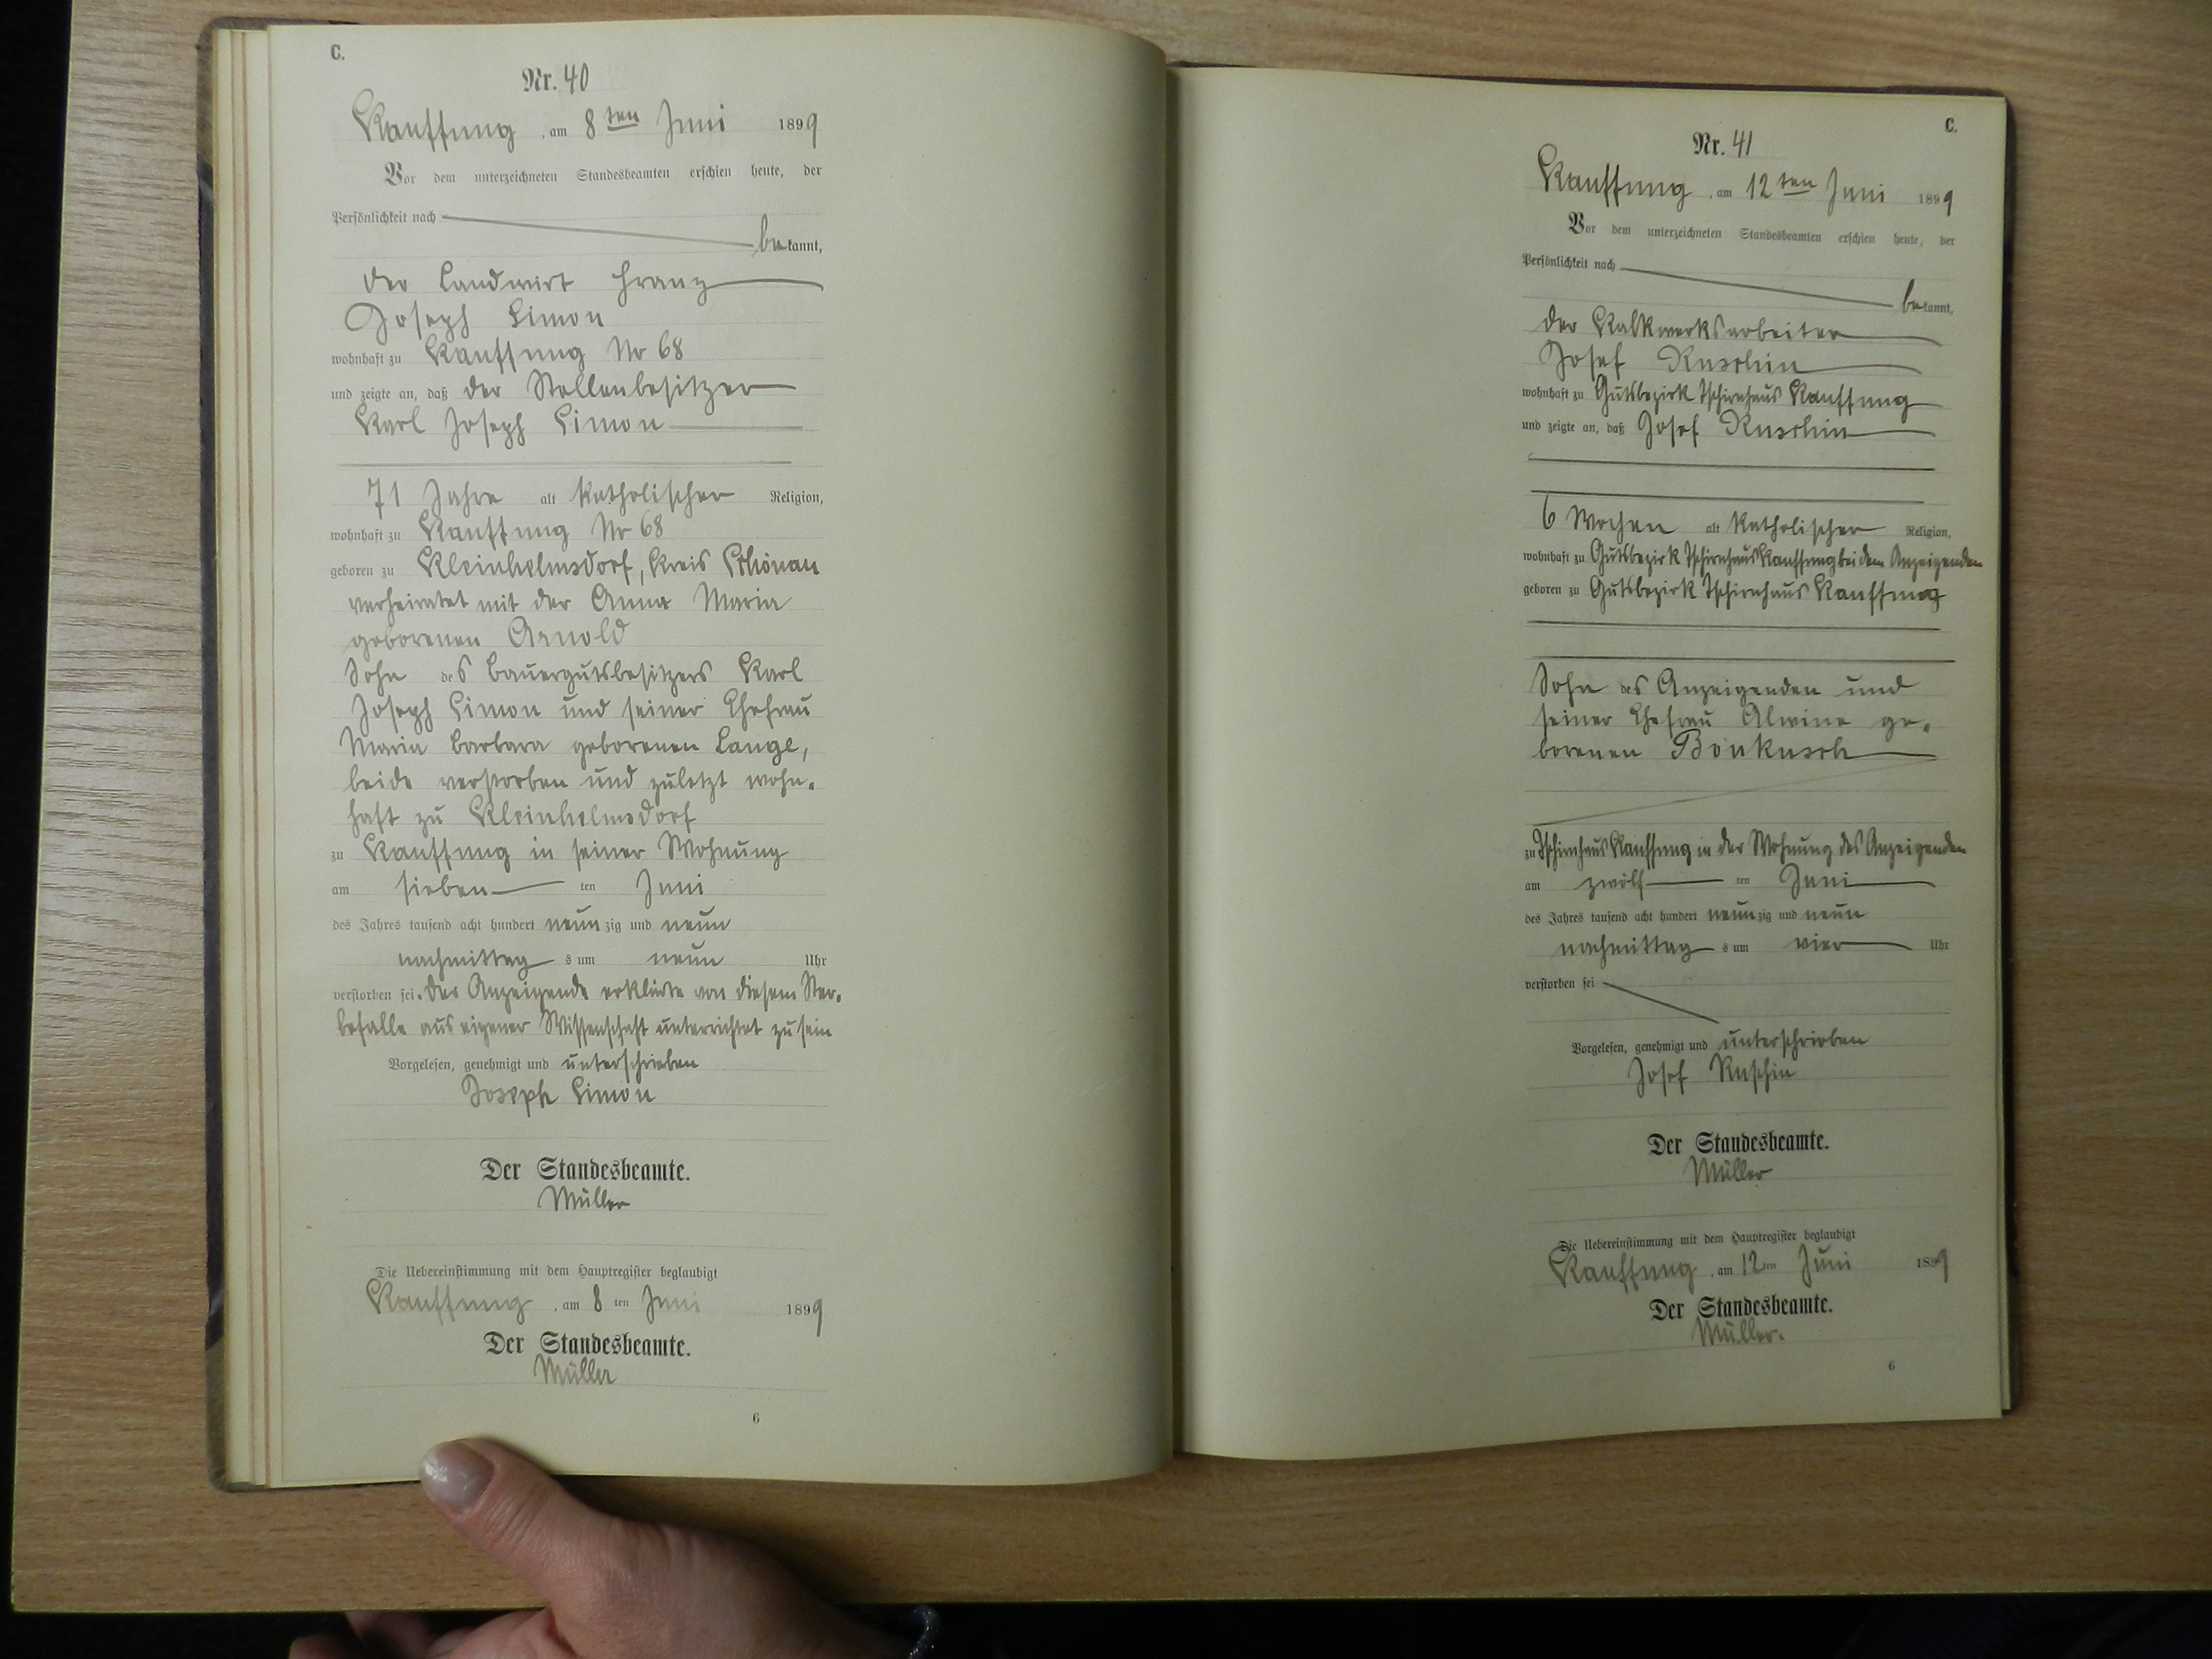 C.
Nr. 40
Kauffung, am 8ten Juni 1899
Vor dem unterzeichneten Standesbeamten erschien heute, der
Persönlichkeit nach
bekannt,
der Landwirt Franz
Joseph Simon
wohnhaft zu Kauffung No 68
und zeigte an, daß der Stellenbesitzer
Karl Joseph Simon
71 Jahre alt katholischer Religion,
wohnhaft zu Kauffung No 68
geboren zu Kleinhelmsdorf, Kreis Schönau
verheiratet mit der Anna Maria
geborenen Arnold
Sohn des Bauergutsbesitzers Karl
Joseph Simon und seiner Ehefrau
Maria Barbara geborenen Lange,
beide verstorben und zuletzt wohn-
haft zu Kleinhelmsdorf
zu Kauffung in seiner Wohnung
am sieben ten Juni
des Jahres tausend acht hundert neunzig und neun
nachmittag s um neun Uhr
verstorben sei. Der Anzeigende erklärte von diesem Ster-
befalle aus eigener Wissenschaft unterrichtet zu sein
Vorgelesen, genehmigt und unterschrieben
Joseph Simon
Der Standesbeamte.
Müller
Die Uebereinstimmung mit dem Hauptregister beglaubigt
Kauffung, am 8ten Juni 1899
Der Standesbeamte.
Müller
6
C.
Nr. 41
Kauffung, am 12ten Juni 1899
Vor dem unterzeichneten Standesbeamten erschien heute, der
Persönlichkeit nach
bekannt,
der Kalkwerksarbeiter
Josef Ruschin
wohnhaft zu Gutsbezirk Tschirnhaus Kauffung
und zeigte an, daß Josef Ruschin
6 Wochen alt katholischer Religion,
wohnhaft zu Gutsbezirk Tschirnhaus Kauffung bei dem Anzeigenden
geboren zu Gutsbezirk Tschirnhaus Kauffung
Sohn des Anzeigenden und
seiner Ehefrau Alwine ge-
borenen
zu Tschirnhaus Kauffung in der Wohnung des Anzeigenden
am zwölf ten Juni
des Jahres tausend acht hundert neunzig und neun
nachmittag s um vier Uhr
verstorben sei
Vorgelesen, genehmigt und unterschrieben
Josef Ruschin
Der Standesbeamte.
Müller
Die Uebereinstimmung mit dem Hauptregister beglaubigt
Kauffung, am 12ten Juni 1899
Der Standesbeamte.
Müller.
6